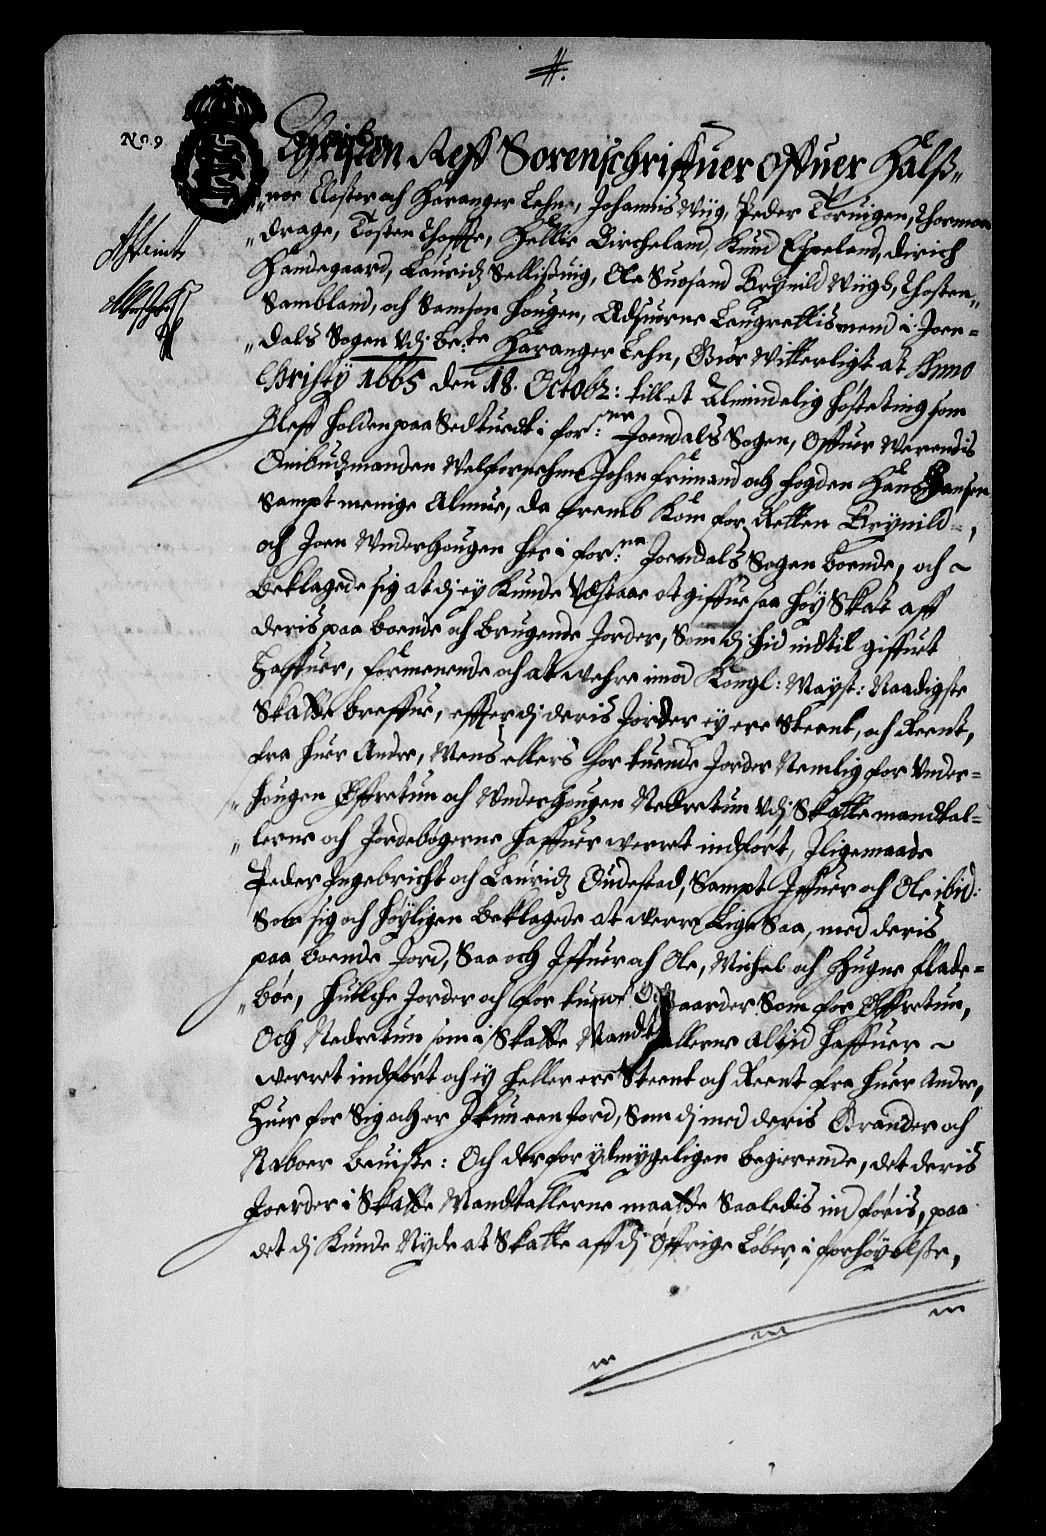 #.
No. 9
Christen Reff Sorenschriffuer offuer Halß-
"noe Closter och Haranger Lehne, Johannis Wiig, Peder Tornigen, Thorman
"drage, Tosten Thoffte, Hellie Bircheland, Knud Espeland, Dirich
Handegaard, Lauridz Sellisuuig, Ole Suosand Brynild Wiigs, Thosten
Sambland, och Samson Hougen, Adsuorne Laugrettismend i Joen-
"dals Sogen udj be:te Haranger Lehn, Giør Witterligt at Anno
Christy 1665 den 18. Octobr: till et Almindelig Høsteting som
Bleff holden paa Sedtuedt i for:ne Joendals Sogen, Offuer Werendis
Ombudzmanden Welfornehme Johan Frimand och fogden Hans Hansen
Sampt menige Almue, da fremb Kom for Retten Brynild
och Joen Underhougen her i for:ne Joendals Sogen boende, och
beklagede sig at dj ey Kunde Udstaae at giffue saa høy Skat aff
deris paa boende och brugende Jorder, Som dj hid indtil giffuet
haffuer, formenende och at wehre imod Kongl: Mayst: Naadigste
Skatte breffue, effter dj deris Jorder ey ere Steent, och Reent,
fra huer Andre, Mens ellers for tuende Jorder Nemlig for Under-
"hougen Øffretun och Underhougen Nedretun Udj Skatte mandtal-
"lerne och Jordebogerne haffuer werret indført, Iligemaade
Peder Ingebricht och Lauridz Oudestad, Sampt Iffuer och Ole ibid:
Som sig och høyligen beklagede at werre Lige Saa, med deris
paa boende Jord, Saa och Iffuer och Ole, Michel och Hugne Flade-
"bøe, huilche Jorder och for tuende Gaarder Som for Øffretun,
Och Nedretun som i Skatte Mandtallerne altid haffuer
werret indført och ey heller ere Steent och Reent fra huer Andre,
huer for Sig och er Ikun een Jord, Som dj med deris Grander och
Naboer beuiste: Och derfor ydmygeligen begierende, det deris
Joerder i Skatte Mandtallerne maatte Saaledis indføris, paa
det dj Kunde Nyde at Skatte aff dj Øffrige Løber, i forhøyelse,